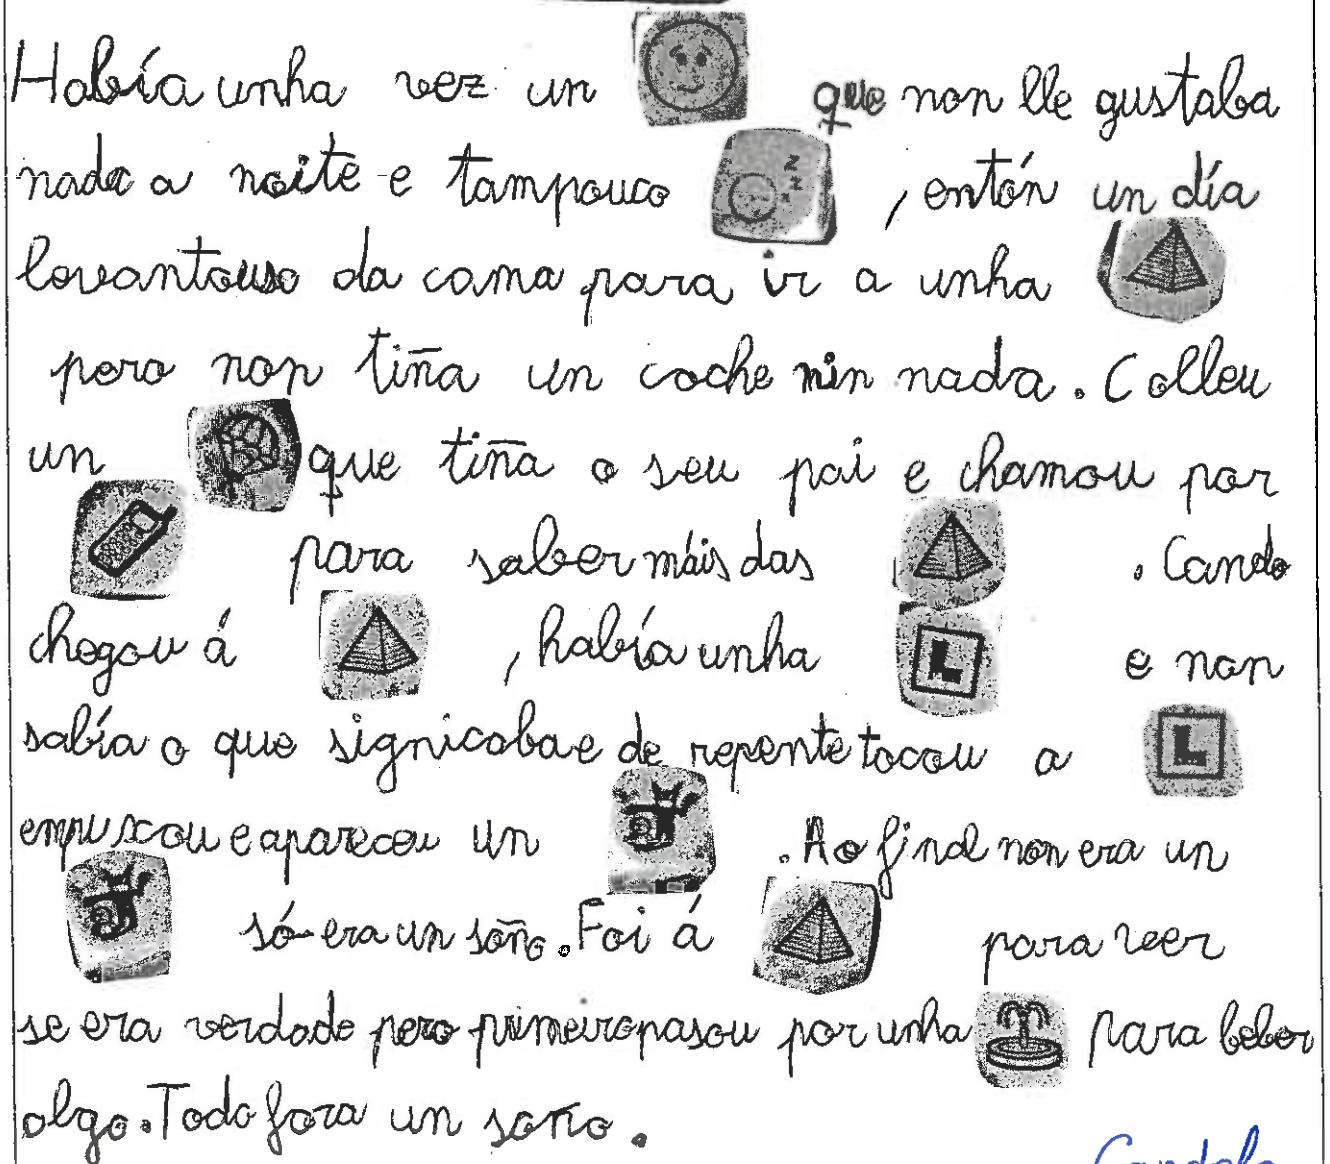 Había unha vez un que non lle gustaba
nada a noite e tampouco z z z , entón un día
levantouse da cama para ir a unha
pero non tiña un coche nin nada. Colleu
un que tiña o seu pai e chamou por
para saber máis das . Cando
chegou á , había unha L e non
sabía o que signicaba e de repente tocou a L
empuxou e apareceu un . Ao final non era un
só era un soño. Foi á para veer
se era verdade pero primeiro pasou por unha para beber
algo. Todo fora un soño.